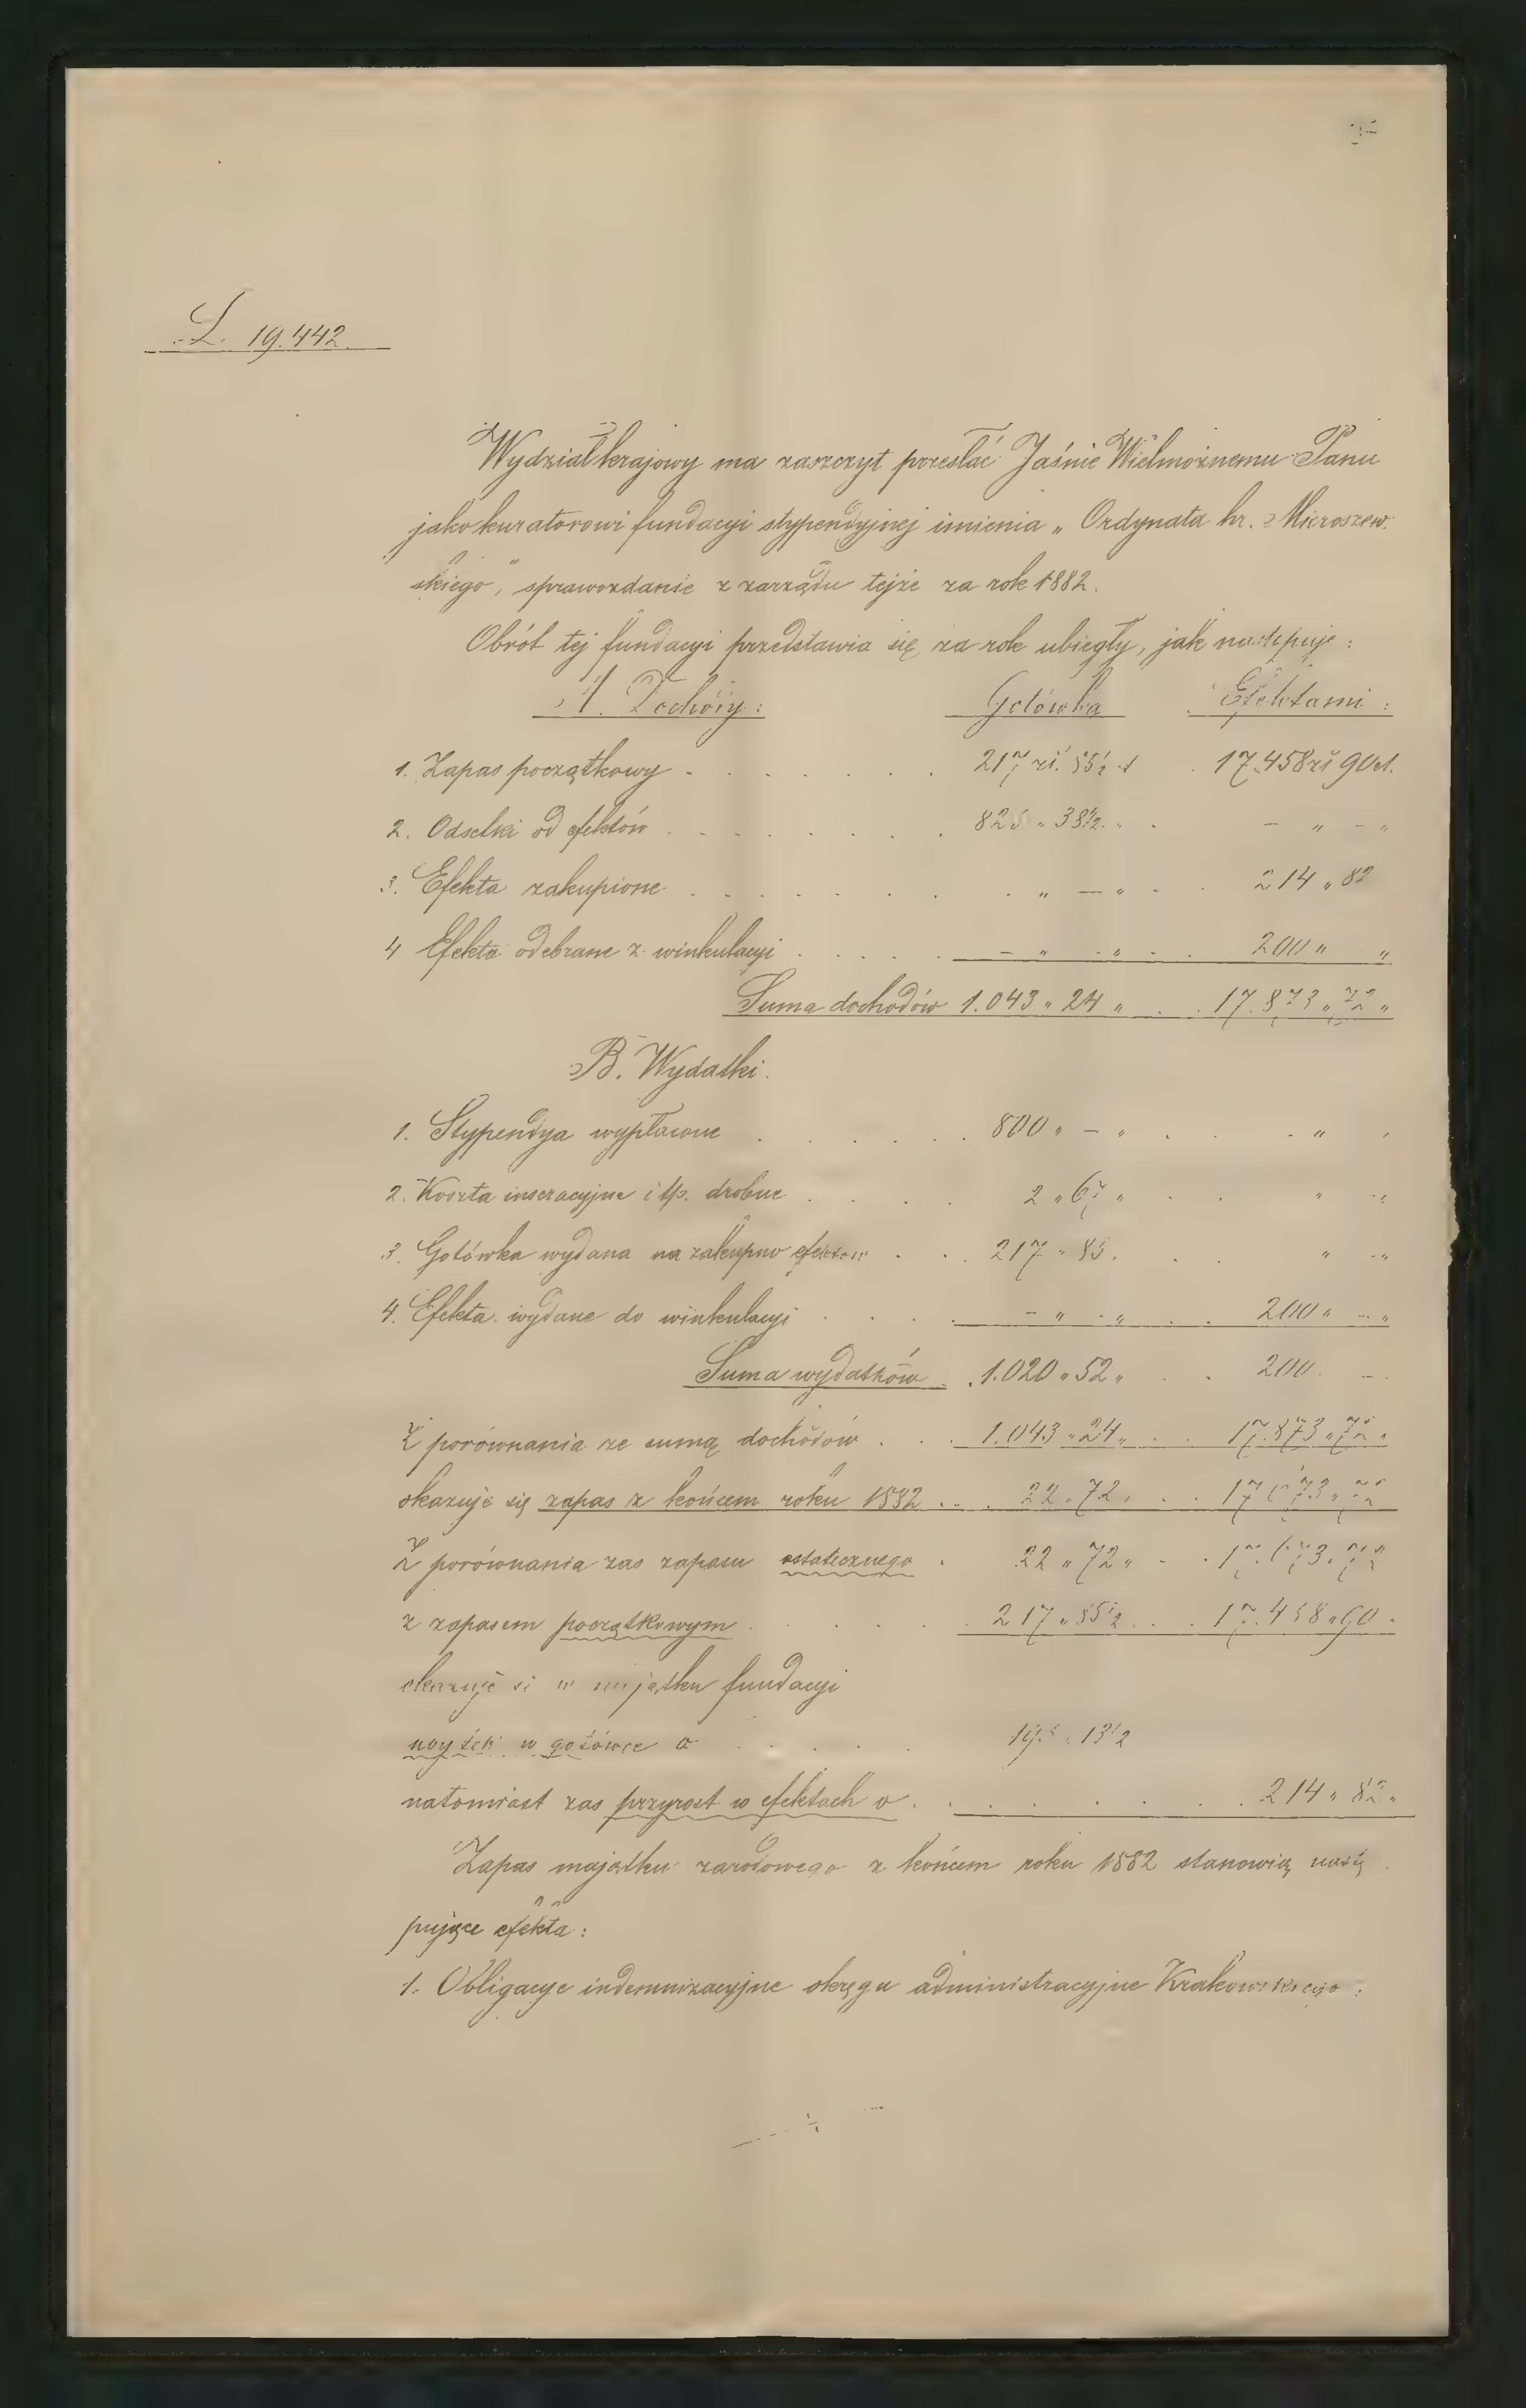 L. 19.442.
Wydział krajowy ma zaszczyt przesłać Jaśnie Wielmożnemu Panu
jako kuratorowi fundacyi stypendyjnej imienia „Ordynata hr. Mieroszew-
skiego", sprawozdanie z zarządu tejże za rok 1882.
Obrót tej fundacyi przedstawia się za rok ubiegły, jak następuje:
A. Dochody: Gotówka Efektami:
1. Zapas początkowy . . . . . 217 zł. 85½ ct . 17.458 zł 90 ct.
2. Odsetki od efektów . . . . . 825 „ 38½ „ . – „ – „
3. Efekta zakupione . . . . . „ – „ . 214 „ 82
4 Efekta odebrane z winkulacyi . . . . – „ - „ . 200 „ „
Suma dochodów 1.043 „ 24 „ . . 17.873 „ 72 „
B. Wydatki.
1. Stypendya wypłacone . . . . 800 „ – „ . . „
2. Koszta inseracyjne i tp. drobne . . . 2 „ 67 „ . . „ „
3. Gotówka wydana na zakupno efektów . . 217 „ 85 . . „ „
4. Efekta wydane do winkulacyi . . . – „ - „ . . 200 „ – „
Suma wydatków . 1.020 „ 52 „ . . 200. –
Z porównania ze sumą dochodów . . 1.043 „ 24 „ . . 17.873 „ 72 „
okazuje się zapas z końcem roku 1882 . . . 22 „ 72 „ . . 17.673 „ 72
Z porównania zas zapasu ostatecznego . 22 „ 72 „ . . 17.673 „ 72
z zapasem początkowym . . . . 217 „ 85½ . . 17.458 „ 90 „
okazuje si w majątku fundacyi
ubytek w gotówce o . . . . 195 „ 13½
natomiast zas przyrost w efektach o . . . . . . 214 „ 82 „
Zapas majątku zarodowego z końcem roku 1882 stanowią nastę
pujące efekta:
1. Obligacye indemnizacyjne okręgu administracyjne Krakowskiego: